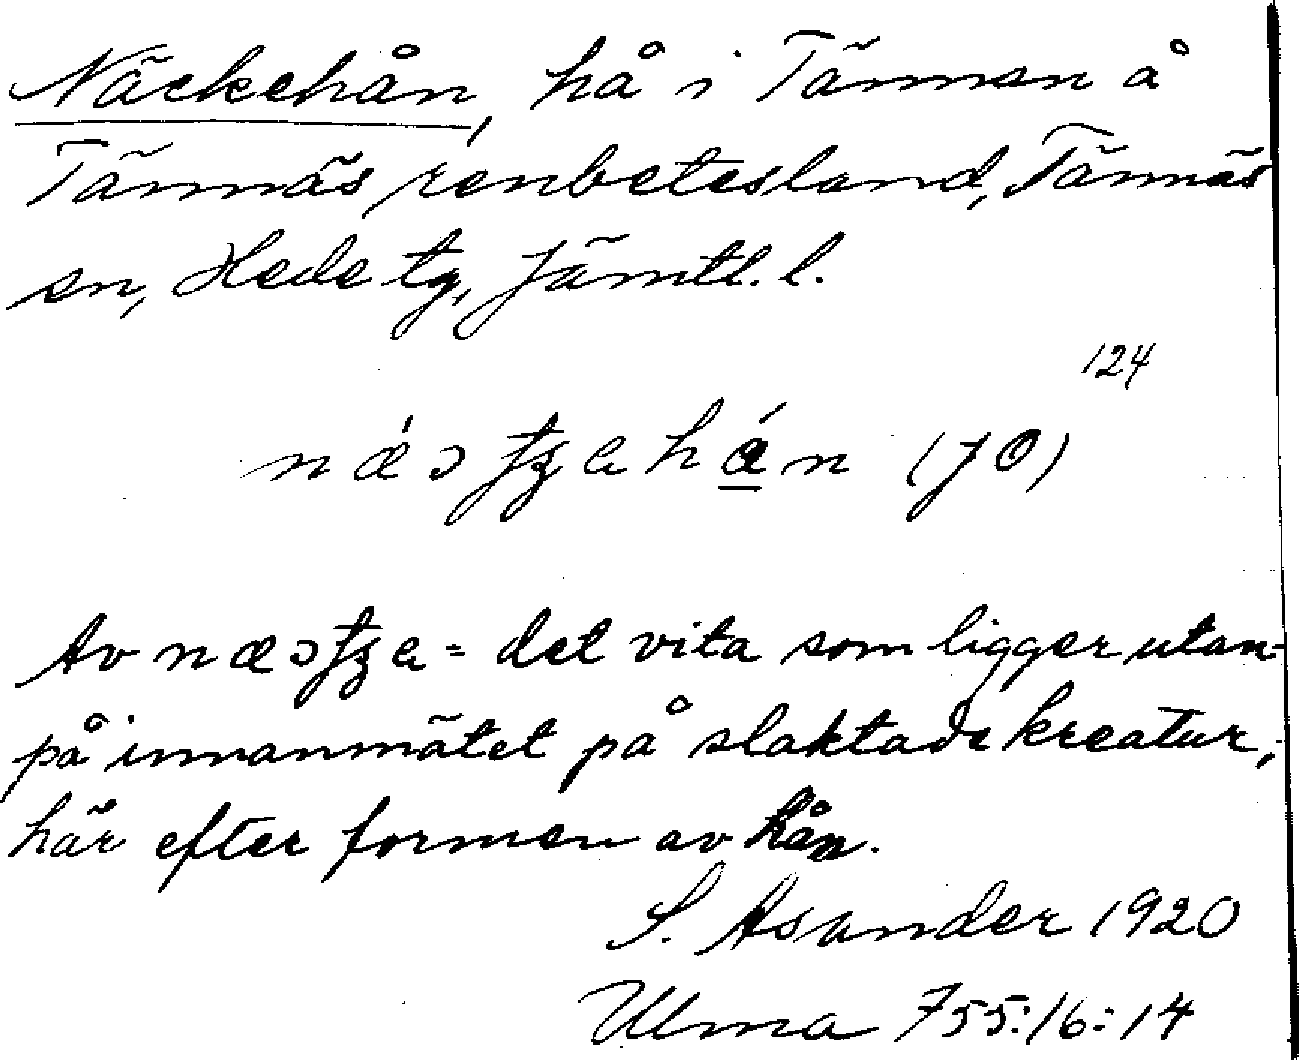 Näckehån, hå i Tännan å
Tännäs renbetesland, Tännäs
sn, Hede tg, Jämtl. l.
124
(JO)
Av = det vita som ligger utan-
på innanmätet på slaktade kreatur,
här efter formen av hån.
S. Asander 1920
Ulma 755:16:14